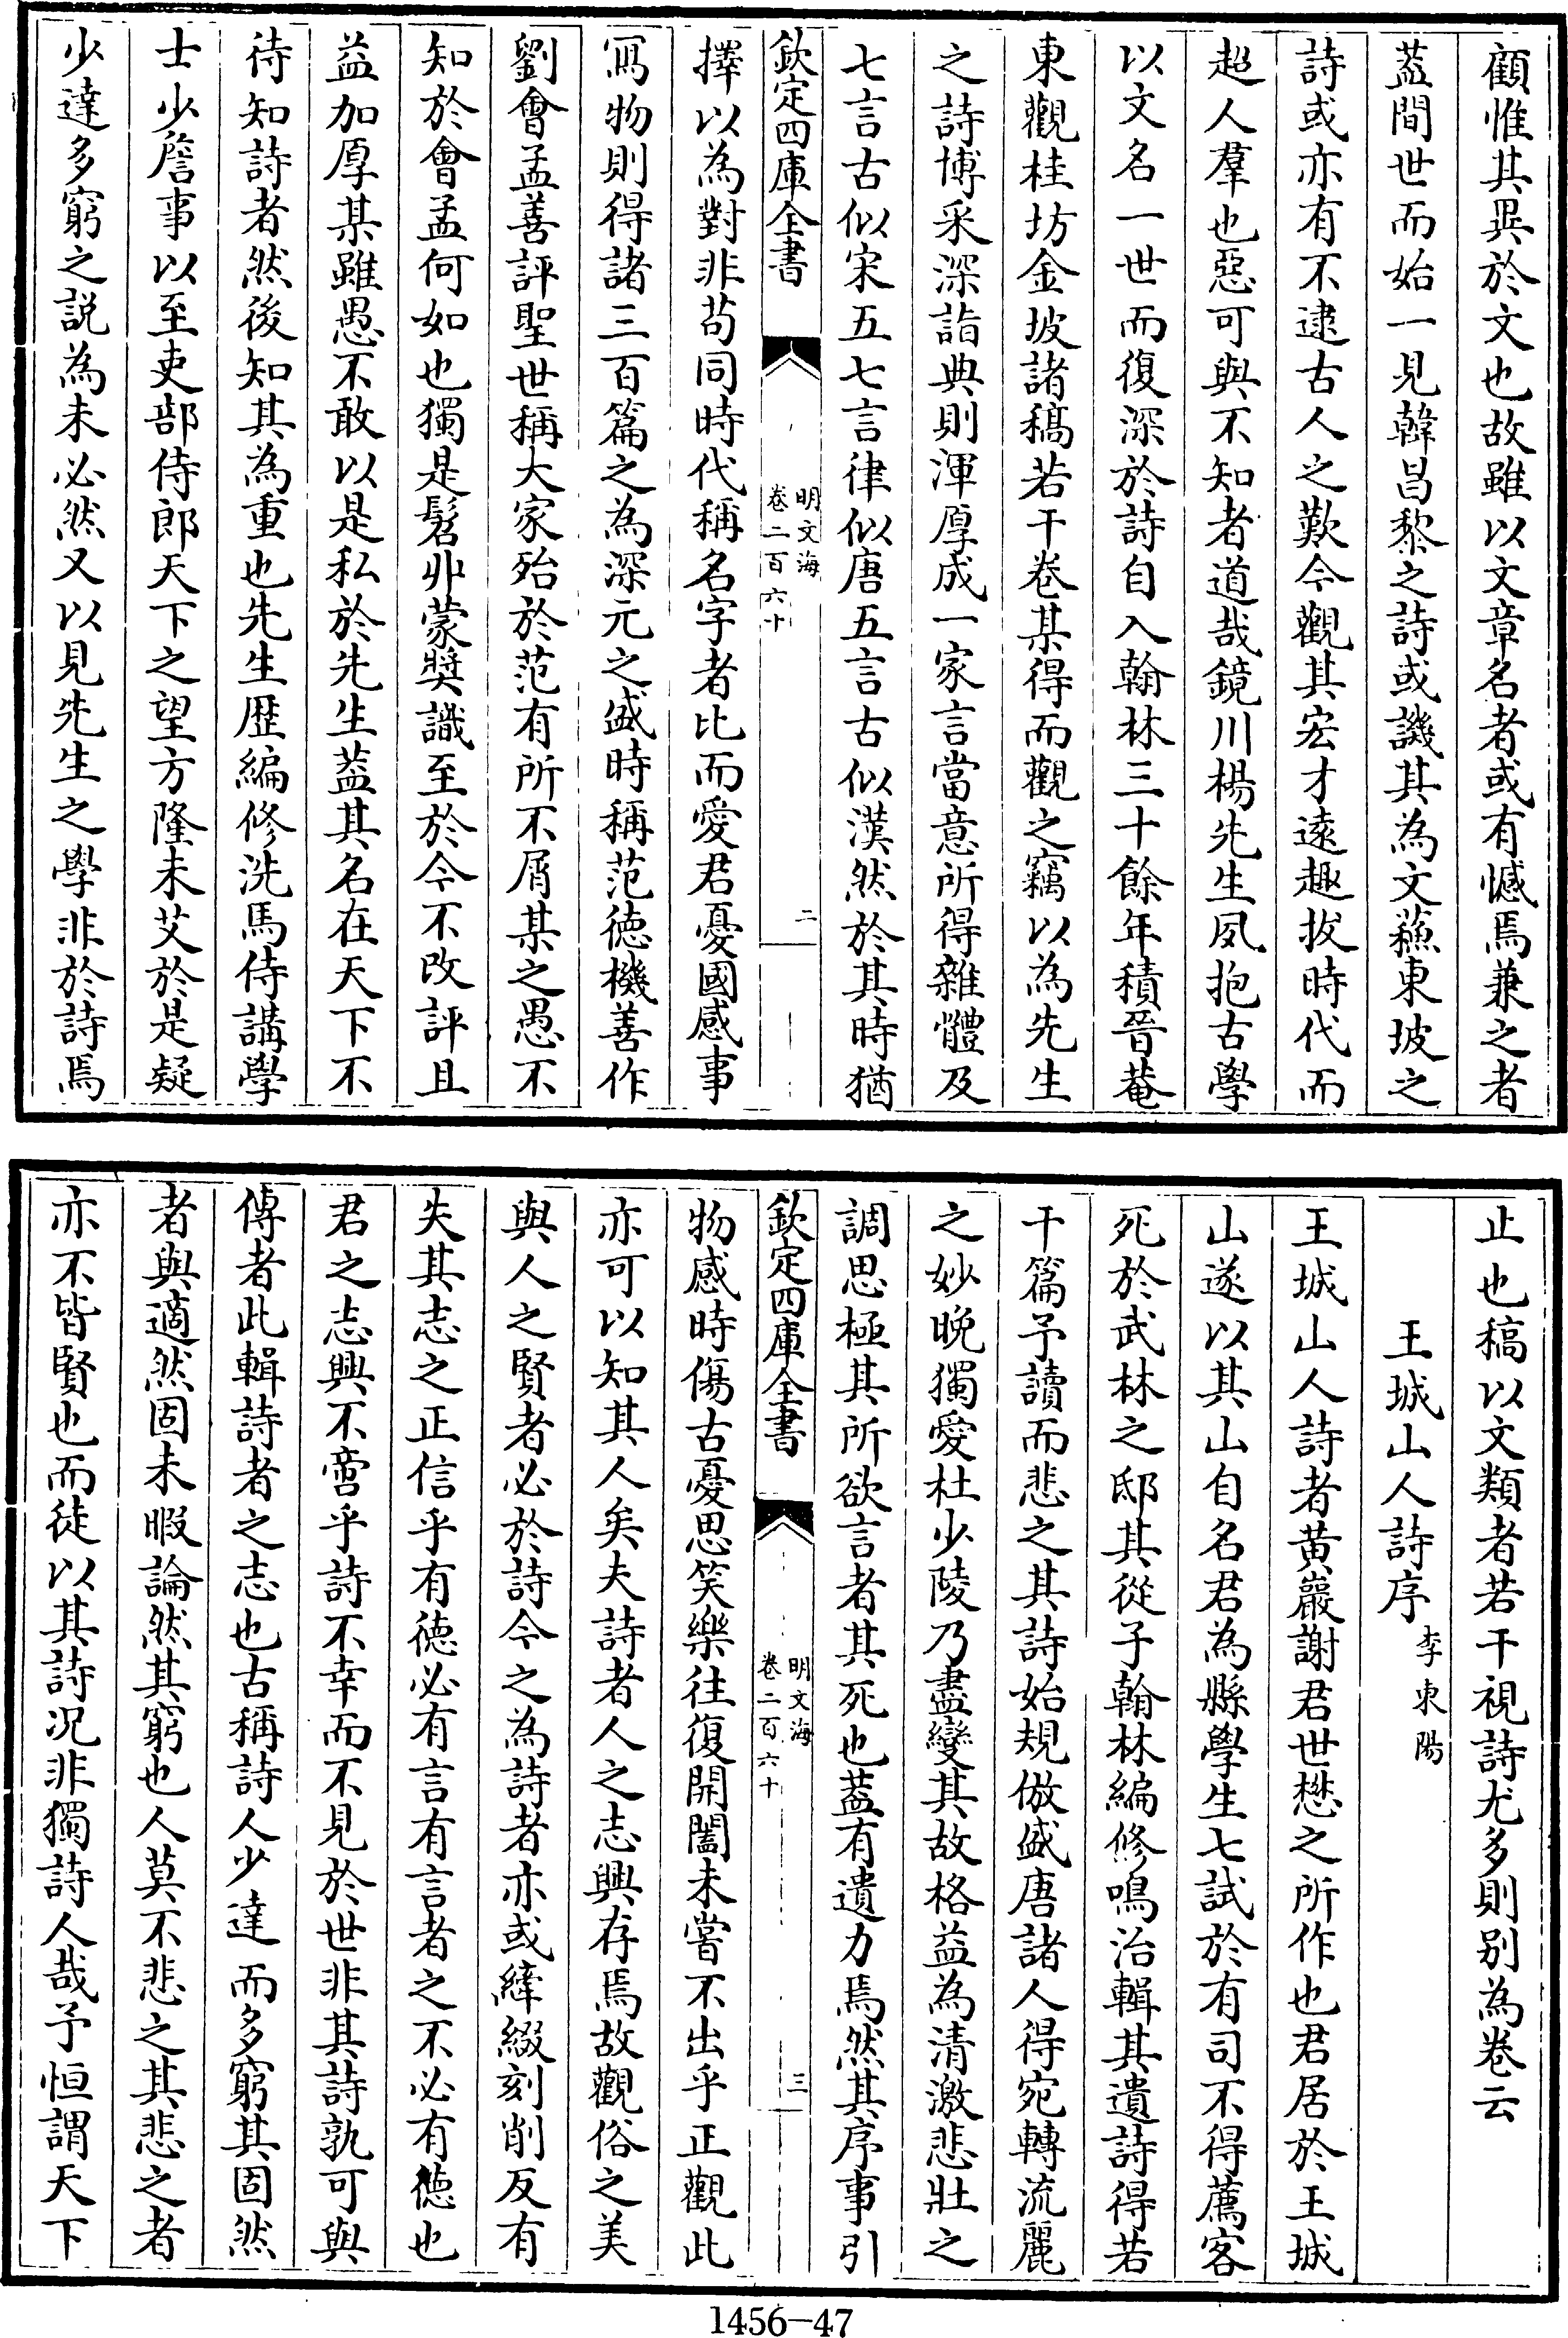 顧惟其異於文也故雖以文章名者或有憾焉兼之者
葢間世而始一見韓昌黎之詩或譏其為文蘇東坡之
詩或亦有不逮古人之歎今觀其宏才遠趣拔時代而
超人羣也惡可與不知者道哉鏡川楊先生夙抱古學
以文名一世而復深於詩自入翰林三十餘年積晉菴
東觀桂坊金坡諸稿若干卷某得而觀之竊以為先生
之詩博采深詣典則渾厚成一家言當意所得雜體及
七言古似宋五七言律似唐五言古似漢然於其時猶
欽定四庫全書
明文海
卷二百六十
二
擇以為對非苟同時代稱名字者比而愛君憂國感事
寫物則得諸三百篇之為深元之盛時稱范德機善作
劉會孟善評聖世稱大家殆於范有所不屑某之愚不
知於會孟何如也獨是髫丱蒙奬識至於今不改評且
益加厚某雖愚不敢以是私於先生葢其名在天下不
待知詩者然後知其為重也先生歴編修洗馬侍講學
士少詹事以至吏部侍郎天下之望方隆未艾於是疑
少達多窮之説為未必然又以見先生之學非於詩焉
止也稿以文類者若干視詩尤多則别為卷云
王城山人詩序李東陽
王城山人詩者黄巖謝君世懋之所作也君居於王城
山遂以其山自名君為縣學生七試於有司不得薦客
死於武林之邸其從子翰林編修鳴治輯其遺詩得若
干篇予讀而悲之其詩始規倣盛唐諸人得宛轉流麗
之妙晚獨愛杜少陵乃盡變其故格益為清激悲壯之
調思極其所欲言者其死也葢有遺力焉然其序事引
欽定四庫全書
明文海
卷二百六十
三
物感時傷古憂思笑樂往復開闔未嘗不出乎正觀此
亦可以知其人矣夫詩者人之志興存焉故觀俗之美
與人之賢者必於詩今之為詩者亦或綘綴刻削反有
失其志之正信乎有德必有言有言者之不必有德也
君之志興不啻乎詩不幸而不見於世非其詩孰可與
傳者此輯詩者之志也古稱詩人少達而多窮其固然
者與適然固未暇論然其窮也人莫不悲之其悲之者
亦不皆賢也而徒以其詩况非獨詩人哉予恒謂天下
1456-47